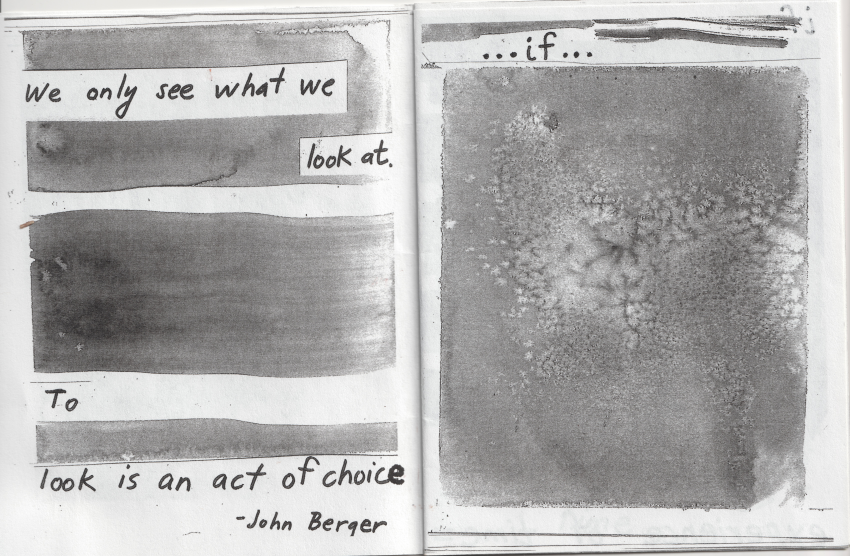 We only see what we
look at.
To
look is an act of choice
-John Berger
...if...